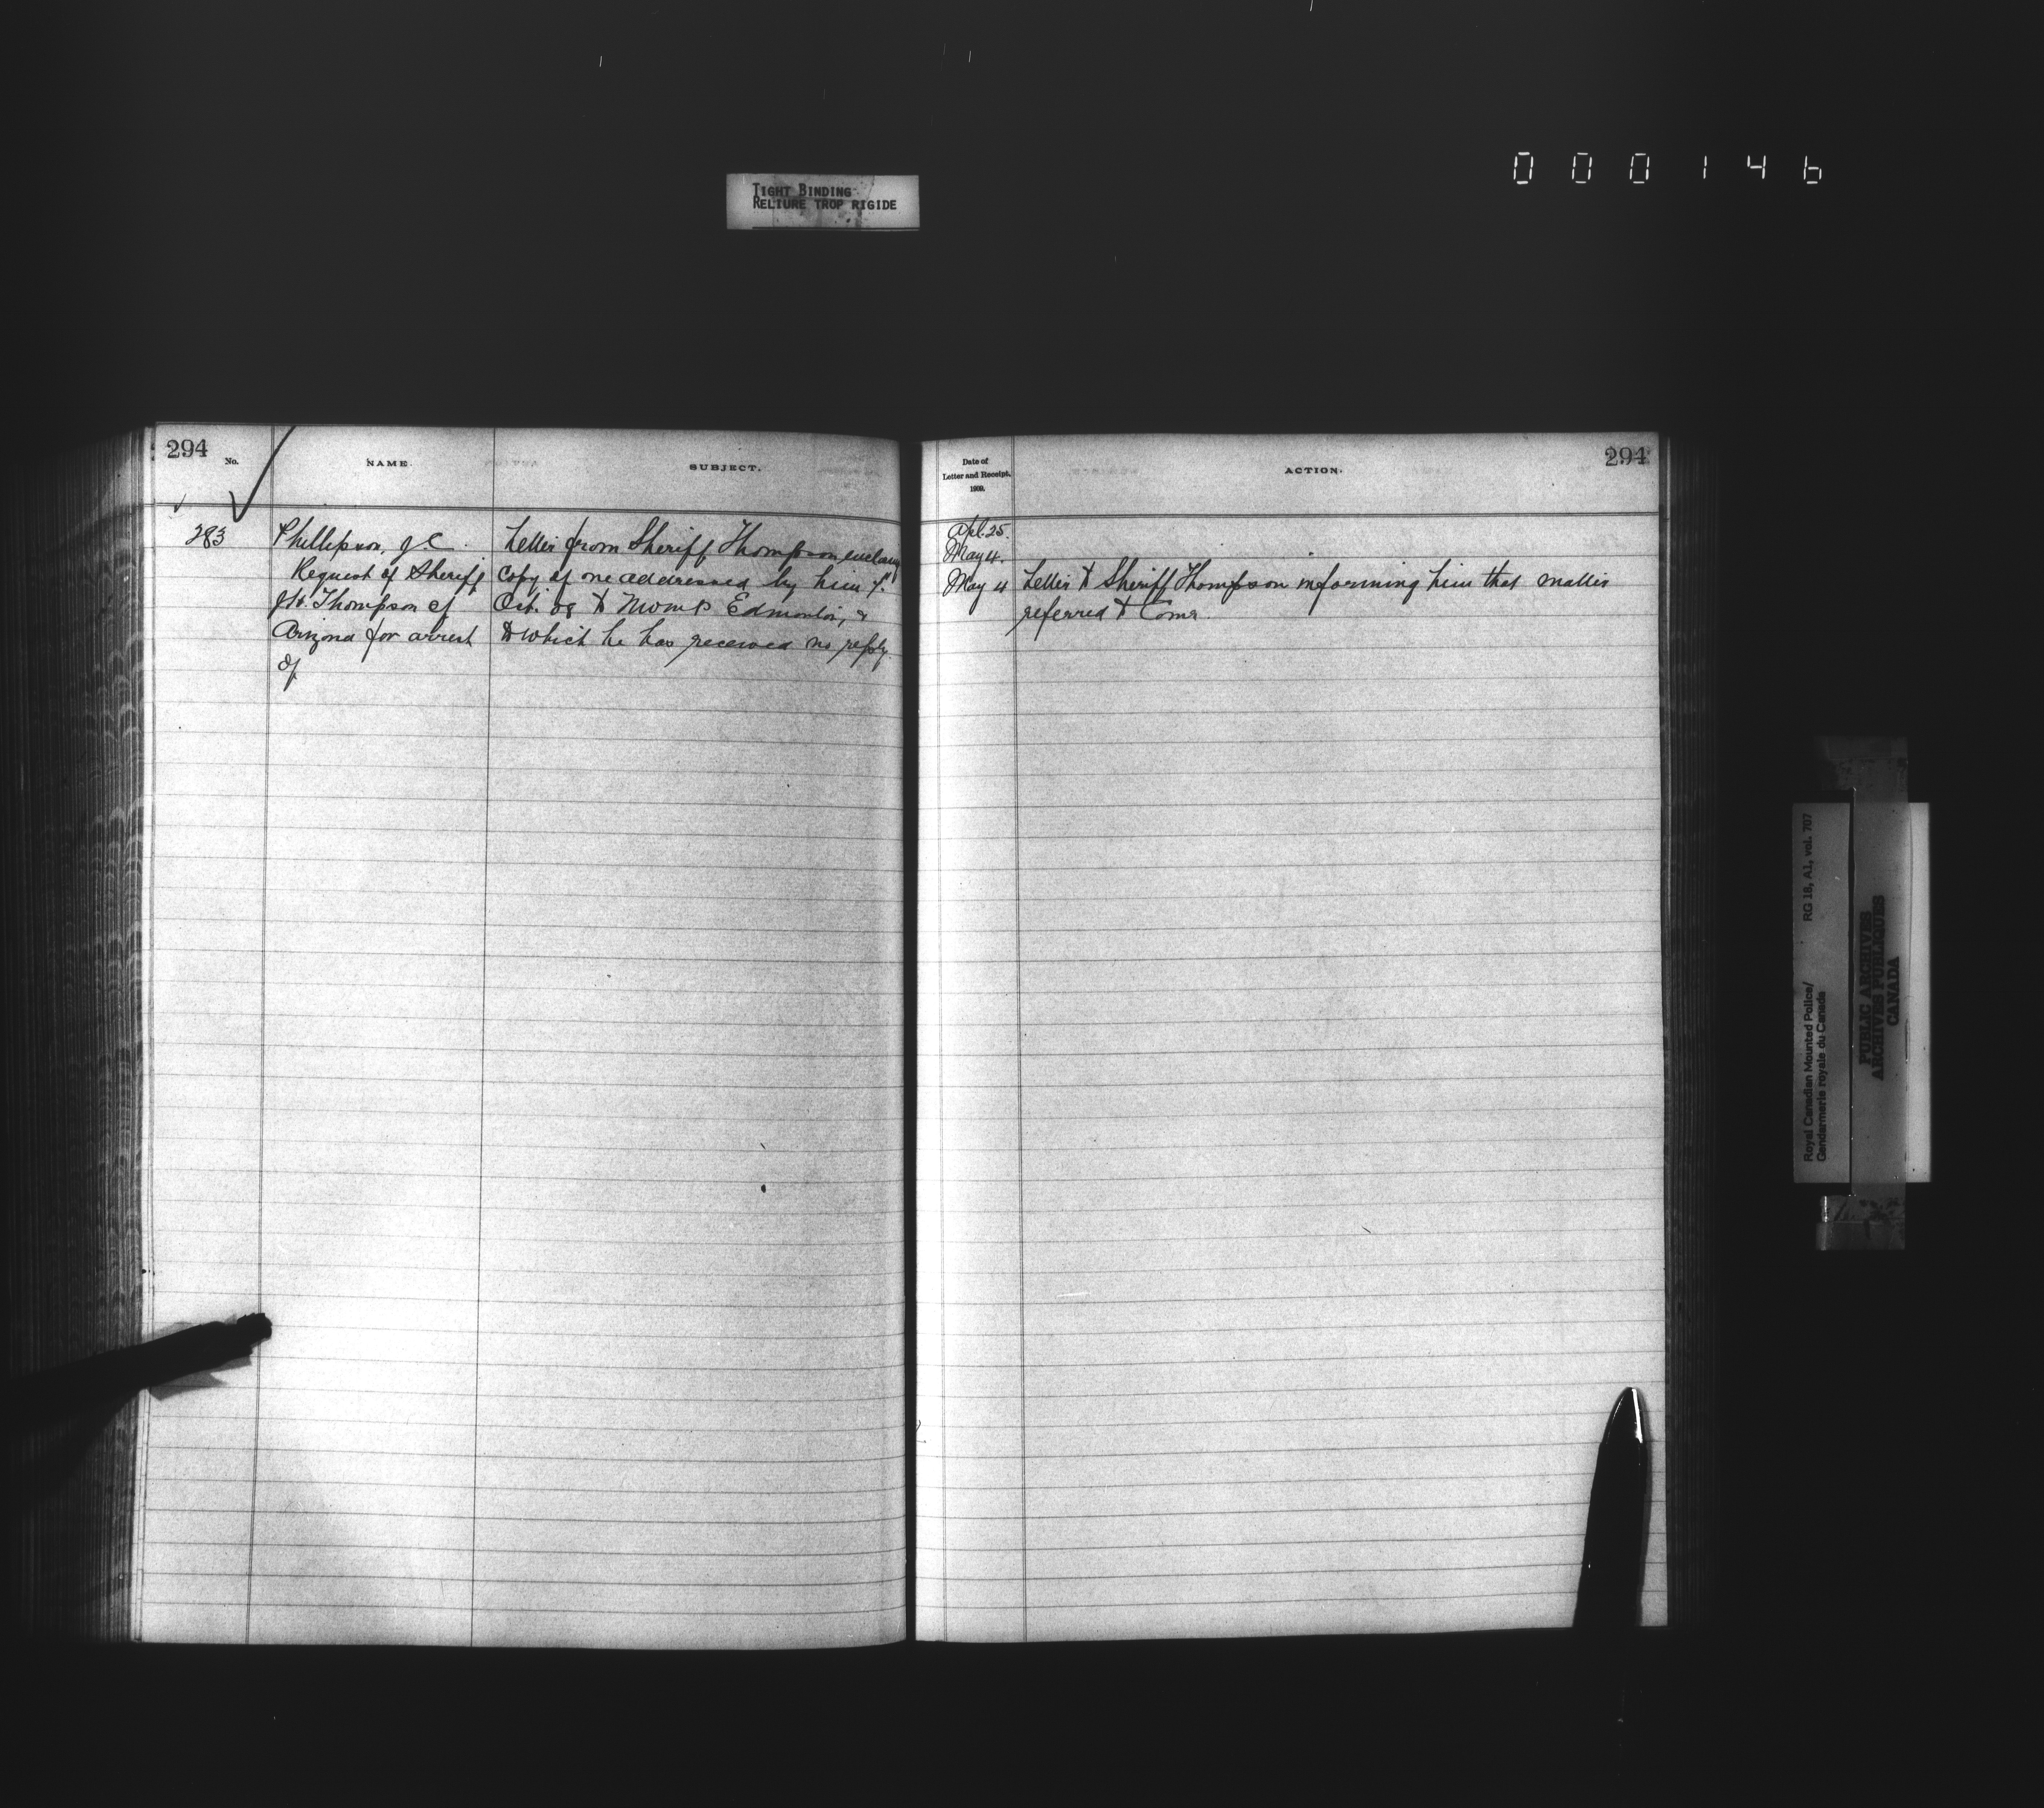 000146
TIGHT BINDING
RELIURE TROP RIGIDE
294
No.
NAME.
SUBJECT.
283
Phillipson, J.C.
Request of Sheriff
J.H. Thompson of
Arizona for arrest
of
Letter from Sheriff Thompson enclosing
copy of one addressed by him
Oct. 08 to RNWMP Edmonton, &
to which he has received no reply.
Date of
Letter and Receipt.
1909.
ACTION.
294
Apl. 25.
May 4.
May 4 Letter to Sheriff Thompson informing him that matter
referred to Comr.
Royal Canadian Mounted Police/
Gendarmerie royale du Canada
RG 18, A1, vol. 707
PUBLIC ARCHIVES
ARCHIVES PUBLIQUES
CANADA